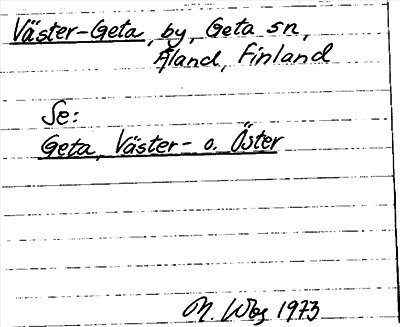 Väster-Geta, by, Geta sn,
Åland, Finland
Se:
Geta, Väster- o. Öster
M. Wbg 1973